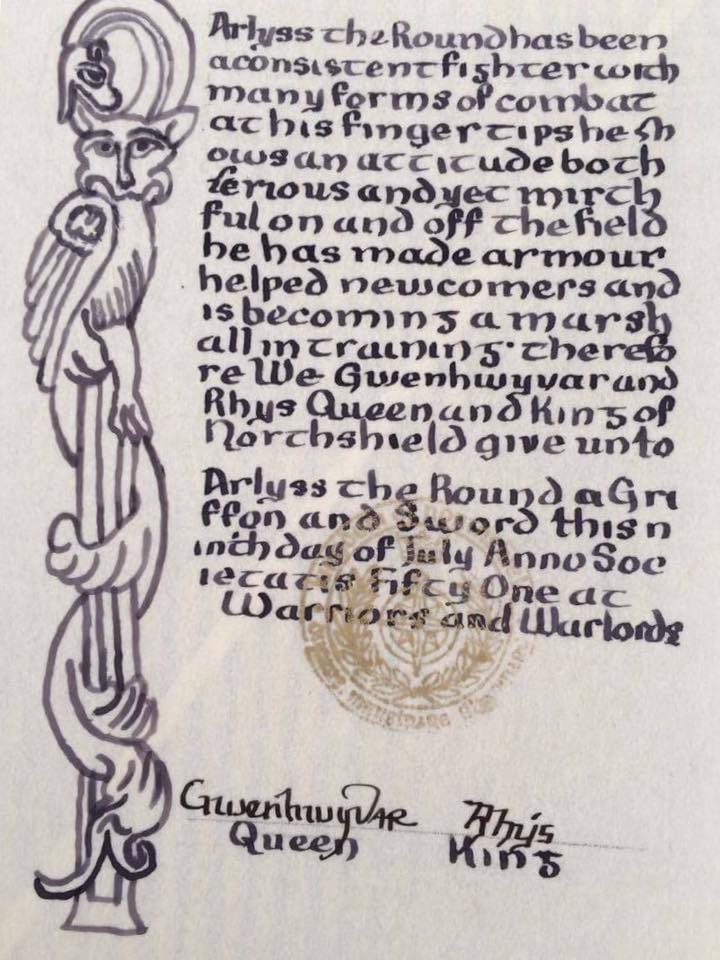 Arlyss the Round has been
a consistent fighter with
many forms of combat
at his fingertips he sh
ows an attitude both
serious and yet mirth
ful on and off the field
he has made armour
helped newcomers and
is becoming a marsh
all in training. therefo
re We Gwenhwyvar and
Rhys Queen and King of
Northshield give unto
Arlyss the Round a Gri
ffon and Sword this n
inth day of July Anno Soc
ietatis Fifty One at
Warriors and Warlords
Gwenhwyvar Rhys
Queen King